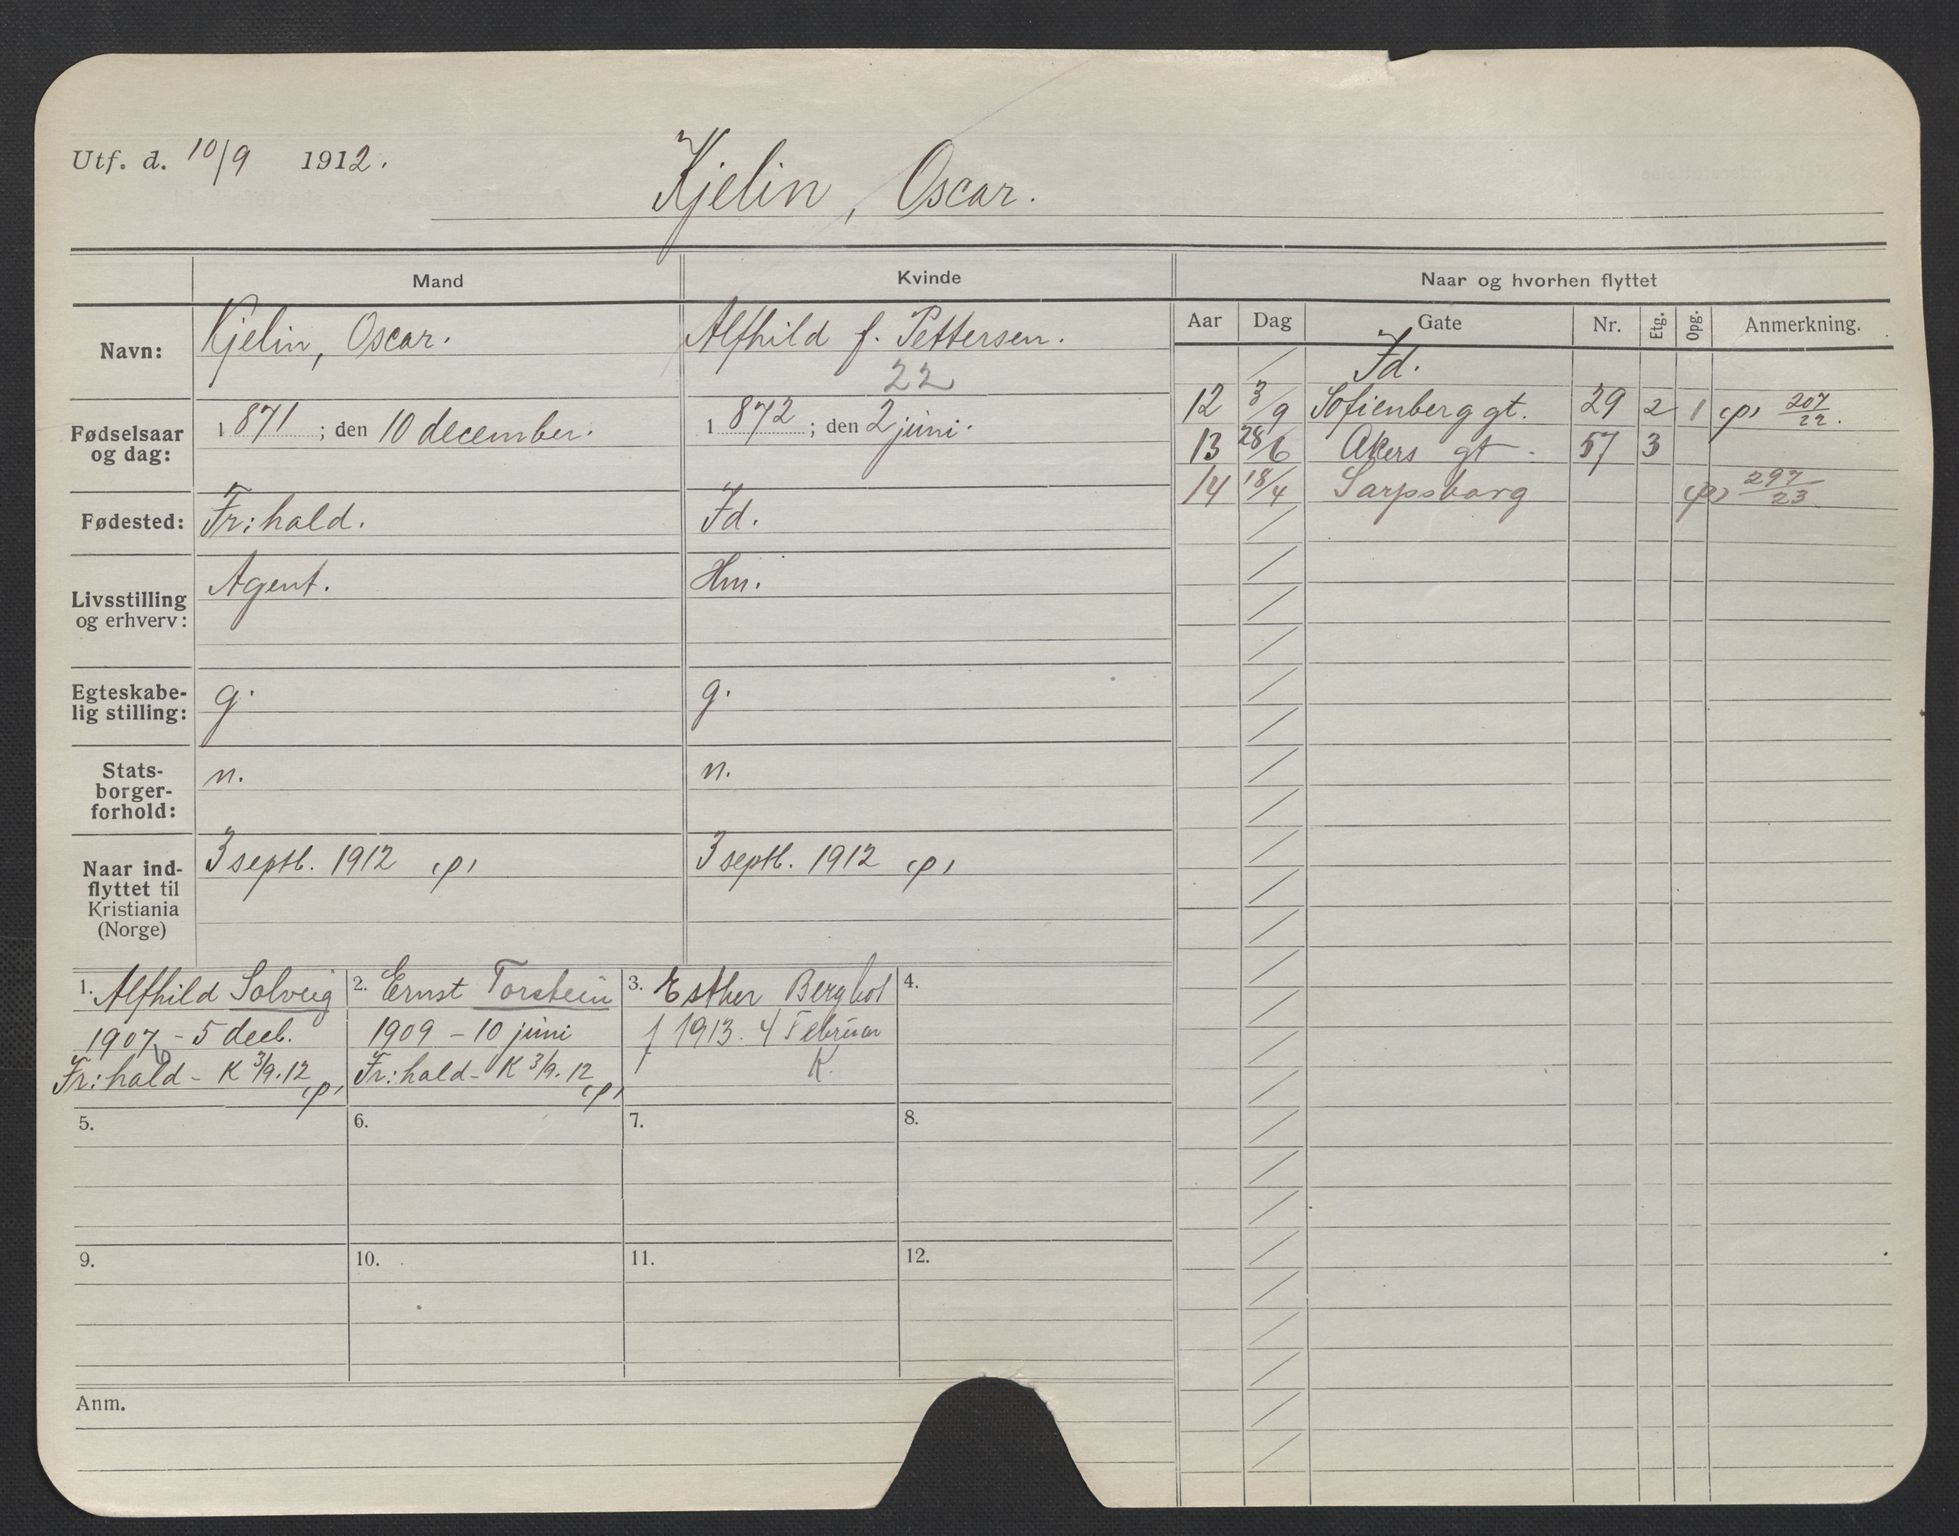 Utf. d. 10/9 1912.
Kjelin, Oscar.
Mand Kvinde Naar og hvorhen flyttet
Navn: Kjelin, Oscar. Alfhild f. Pettersen.
22
Fødselsaar og dag: 1871; den 10 december. 1872; den 2 juni.
Fødested: Fr:hald. Id.
Livsstilling og erhverv: Agent. Hm.
Egteskabe-
lig stilling: g. g.
Stats-
borger-
forhold: n. n.
Naar ind-
flyttet til
Kristiania
(Norge) 3 septb. 1912 (p) 3 septb. 1912 (p)
Aar Dag Gate Nr. Etg. Opg. Anmerkning.
Id.
12 3/9 Sofienberggt. 29 2 1 (p) 207/22.
13 28/6 Akers gt. 57 3
14 18/4 Sarpsborg (p) 297/23
1. Alfhild Solveig
1907 - 5 decb.
Fr:hald - K 3/9.12 (p)
2. Ernst Torstein
1909 - 10 juni
Fr:hald - K 3/9.12 (p)
3. Esther Bergliot
f 1913. 4 Februar
K.
4.
5. 6. 7. 8.
9. 10. 11. 12.
Anm.